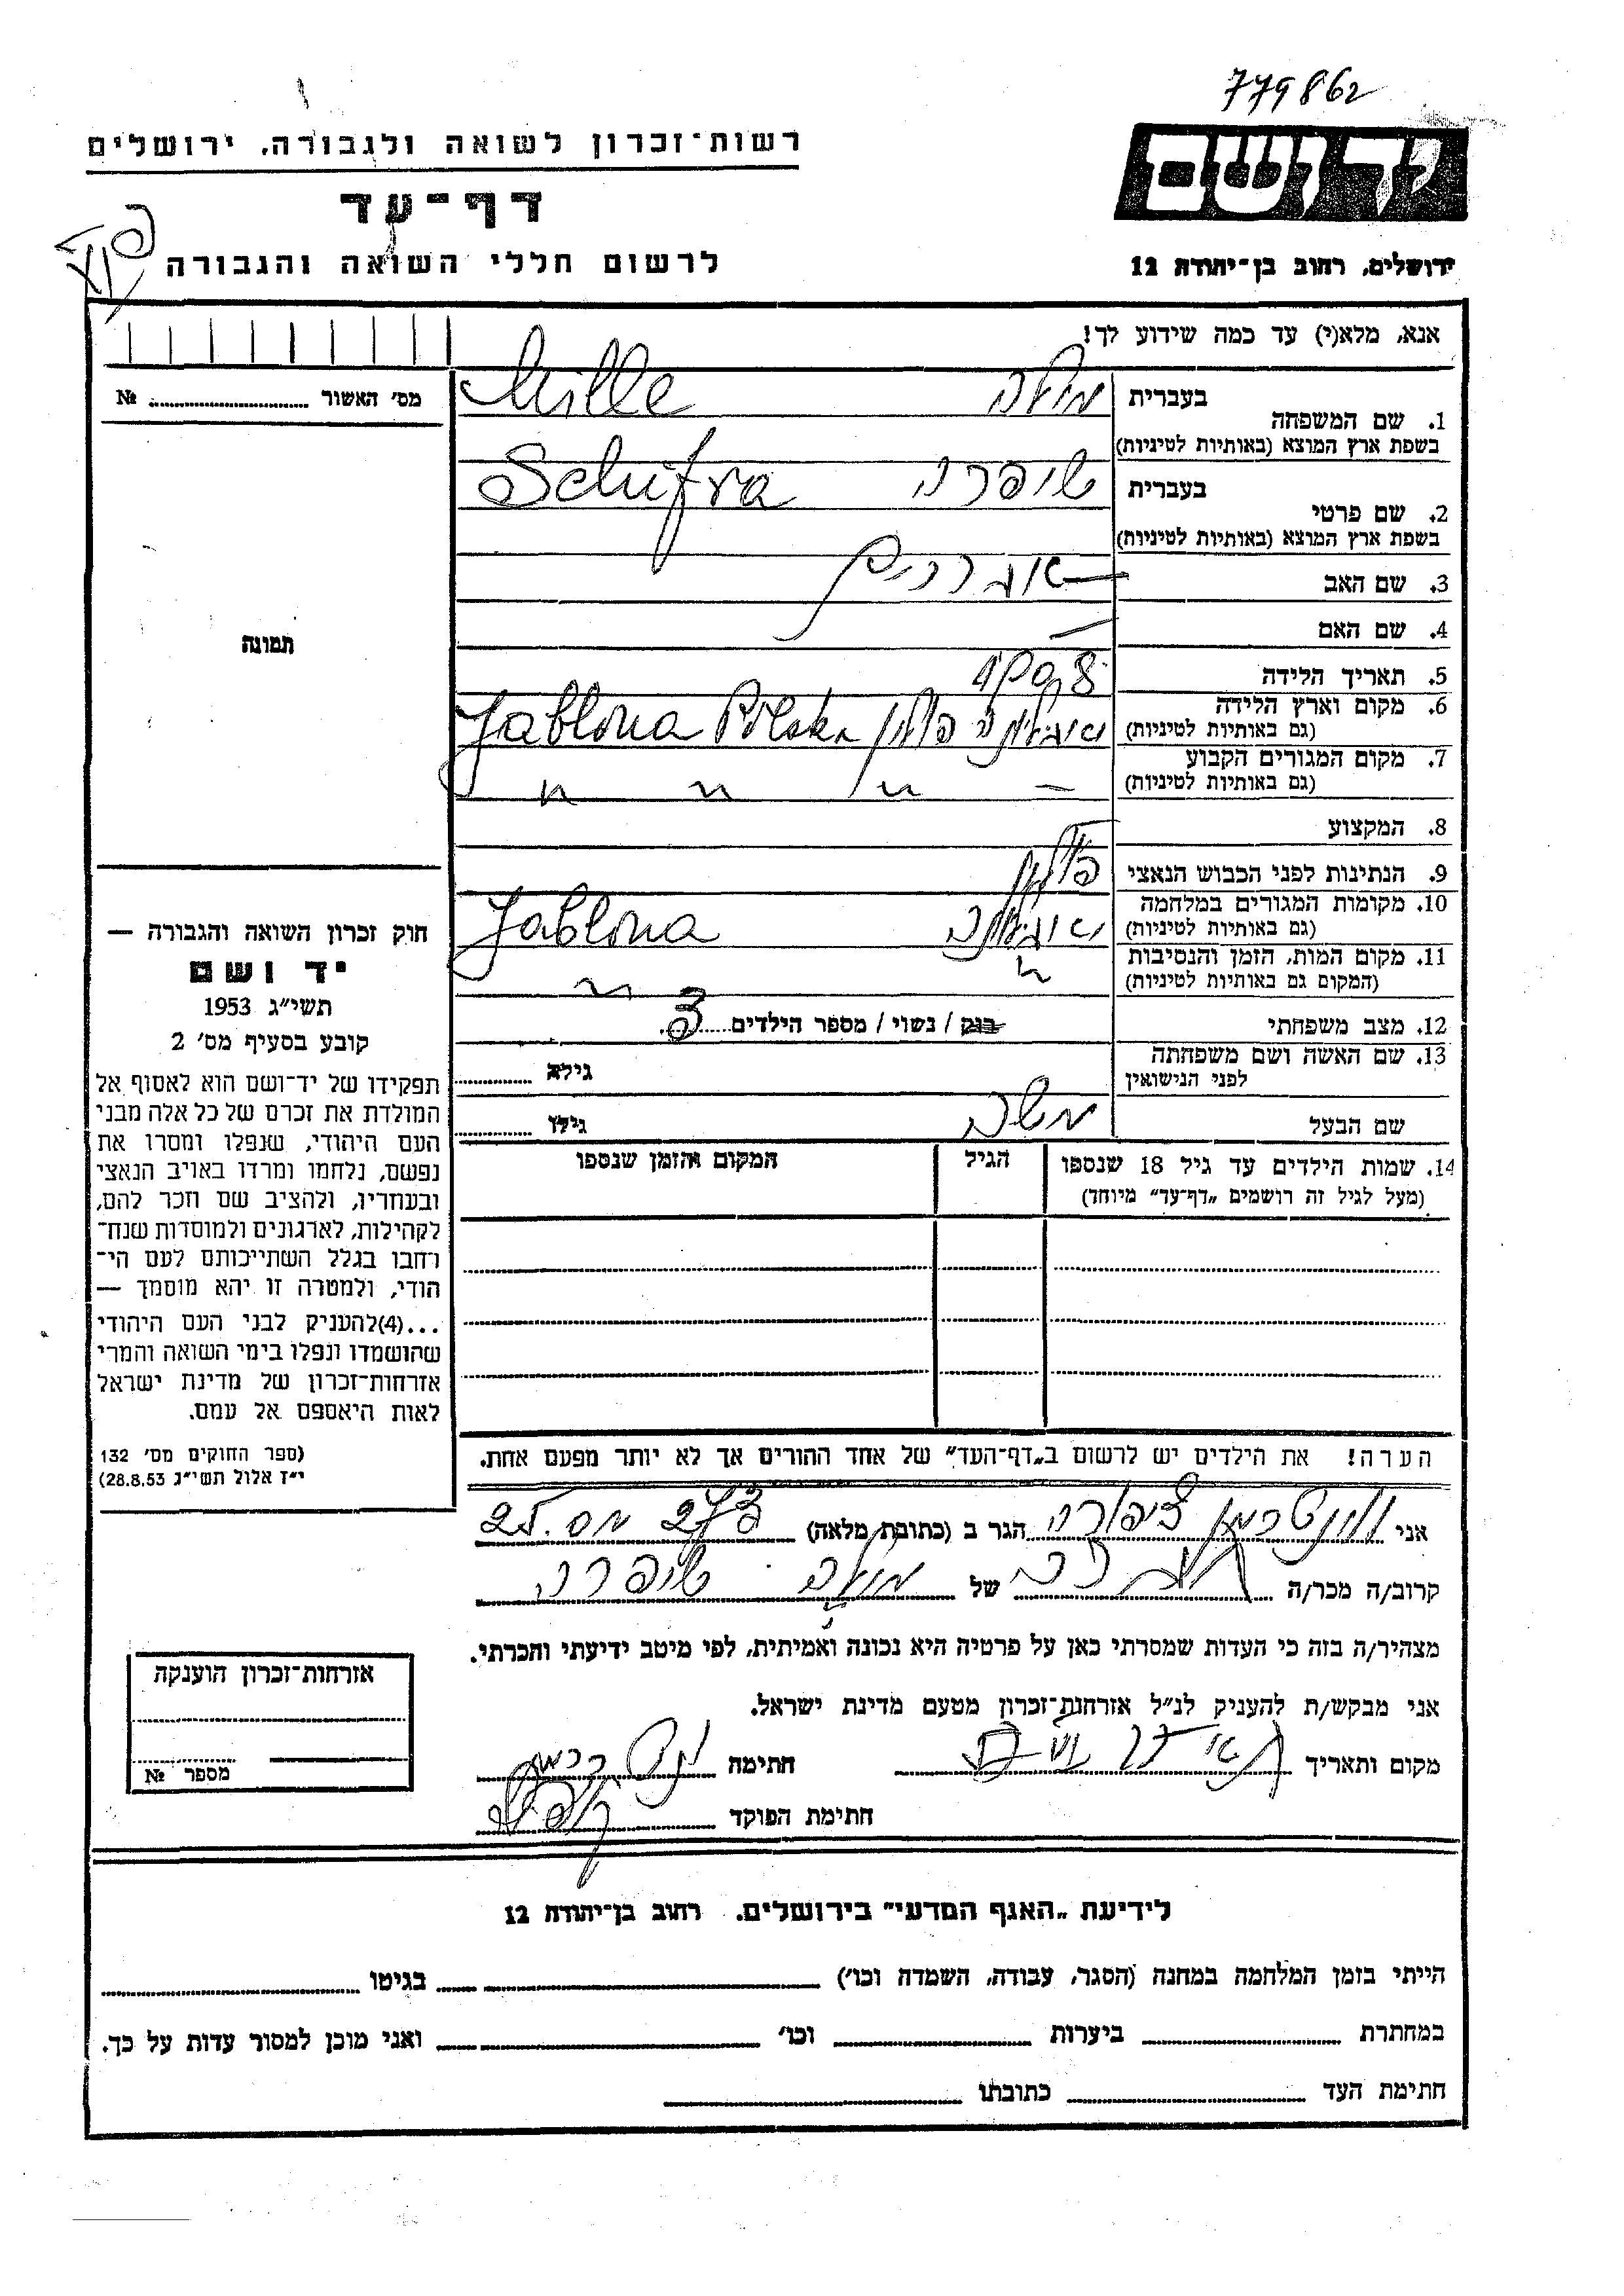 779862
רשות־זכרון לשואה ולגבורה, ירושלים
יד ושם
דף־עד
לרשום חללי השואה והגבורה
ירושלים, רחוב בן־יהודה 12
אנא, מלא(י) עד כמה שידוע לך!
מס׳ האשור № ..........
1. שם המשפחה בעברית מילה Mille
בשפת ארץ המוצא (באותיות לטיניות)
2. שם פרטי בעברית שיפרה Schifra
בשפת ארץ המוצא (באותיות לטיניות)
3. שם האב אברהים
4. שם האם —
5. תאריך הלידה
6. מקום וארץ הלידה יאבלונה פולין Jablona Polska
(גם באותיות לטיניות)
7. מקום המגורים הקבוע — " " " "
(גם באותיות לטיניות)
8. המקצוע
9. הנתינות לפני הכבוש הנאצי פולין
10. מקומות המגורים במלחמה יאבלונה Jablona
(גם באותיות לטיניות)
11. מקום המות, הזמן והנסיבות " "
(המקום גם באותיות לטיניות)
12. מצב משפחתי רווק / נשוי / מספר הילדים 3
13. שם האשה ושם משפחתה גילה
לפני הנישואין
שם הבעל משה גילו
תמונה
14. שמות הילדים עד גיל 18 שנספו הגיל המקום והזמן שנספו
(מעל לגיל זה רושמים „דף־עד” מיוחד)
חוק זכרון השואה והגבורה —
יד ושם
תשי״ג 1953
קובע בסעיף מס׳ 2
תפקידו של יד־ושם הוא לאסוף אל
המולדת את זכרם של כל אלה מבני
העם היהודי, שנפלו ומסרו את
נפשם, נלחמו ומרדו באויב הנאצי
ובעוזריו, ולהציב שם וזכר להם,
לקהילות, לארגונים ולמוסדות שנח־
רבו בגלל השתייכותם לעם הי־
הודי, ולמטרה זו יהא מוסמך —
...(4)להעניק לבני העם היהודי
שהושמדו ונפלו בימי השואה והמרי
אזרחות־זכרון של מדינת ישראל
לאות היאספם אל עמם.
(ספר החוקים מס׳ 132
י״ז אלול תשי״ג 28.8.53)
הערה! את הילדים יש לרשום ב„דף־העד” של אחד ההורים אך לא יותר מפעם אחת.
אני ווינטרמן ציפורה הגר ב (כתובת מלאה) 25 מס.
קרוב/ה מכר/ה חברה של מילה שיפרה
מצהיר/ה בזה כי העדות שמסרתי כאן על פרטיה היא נכונה ואמיתית, לפי מיטב ידיעתי והכרתי.
אני מבקש/ת להעניק לנ״ל אזרחות־זכרון מטעם מדינת ישראל.
מקום ותאריך חתימה
חתימת הפוקד
אזרחות־זכרון הוענקה
מספר №
לידיעת „האגף המדעי” בירושלים. רחוב בן־יהודה 12
הייתי בזמן המלחמה במחנה (הסגר, עבודה, השמדה וכו׳) בגיטו
במחתרת ביערות וכו׳ ואני מוכן למסור עדות על כך.
חתימת העד כתובתו